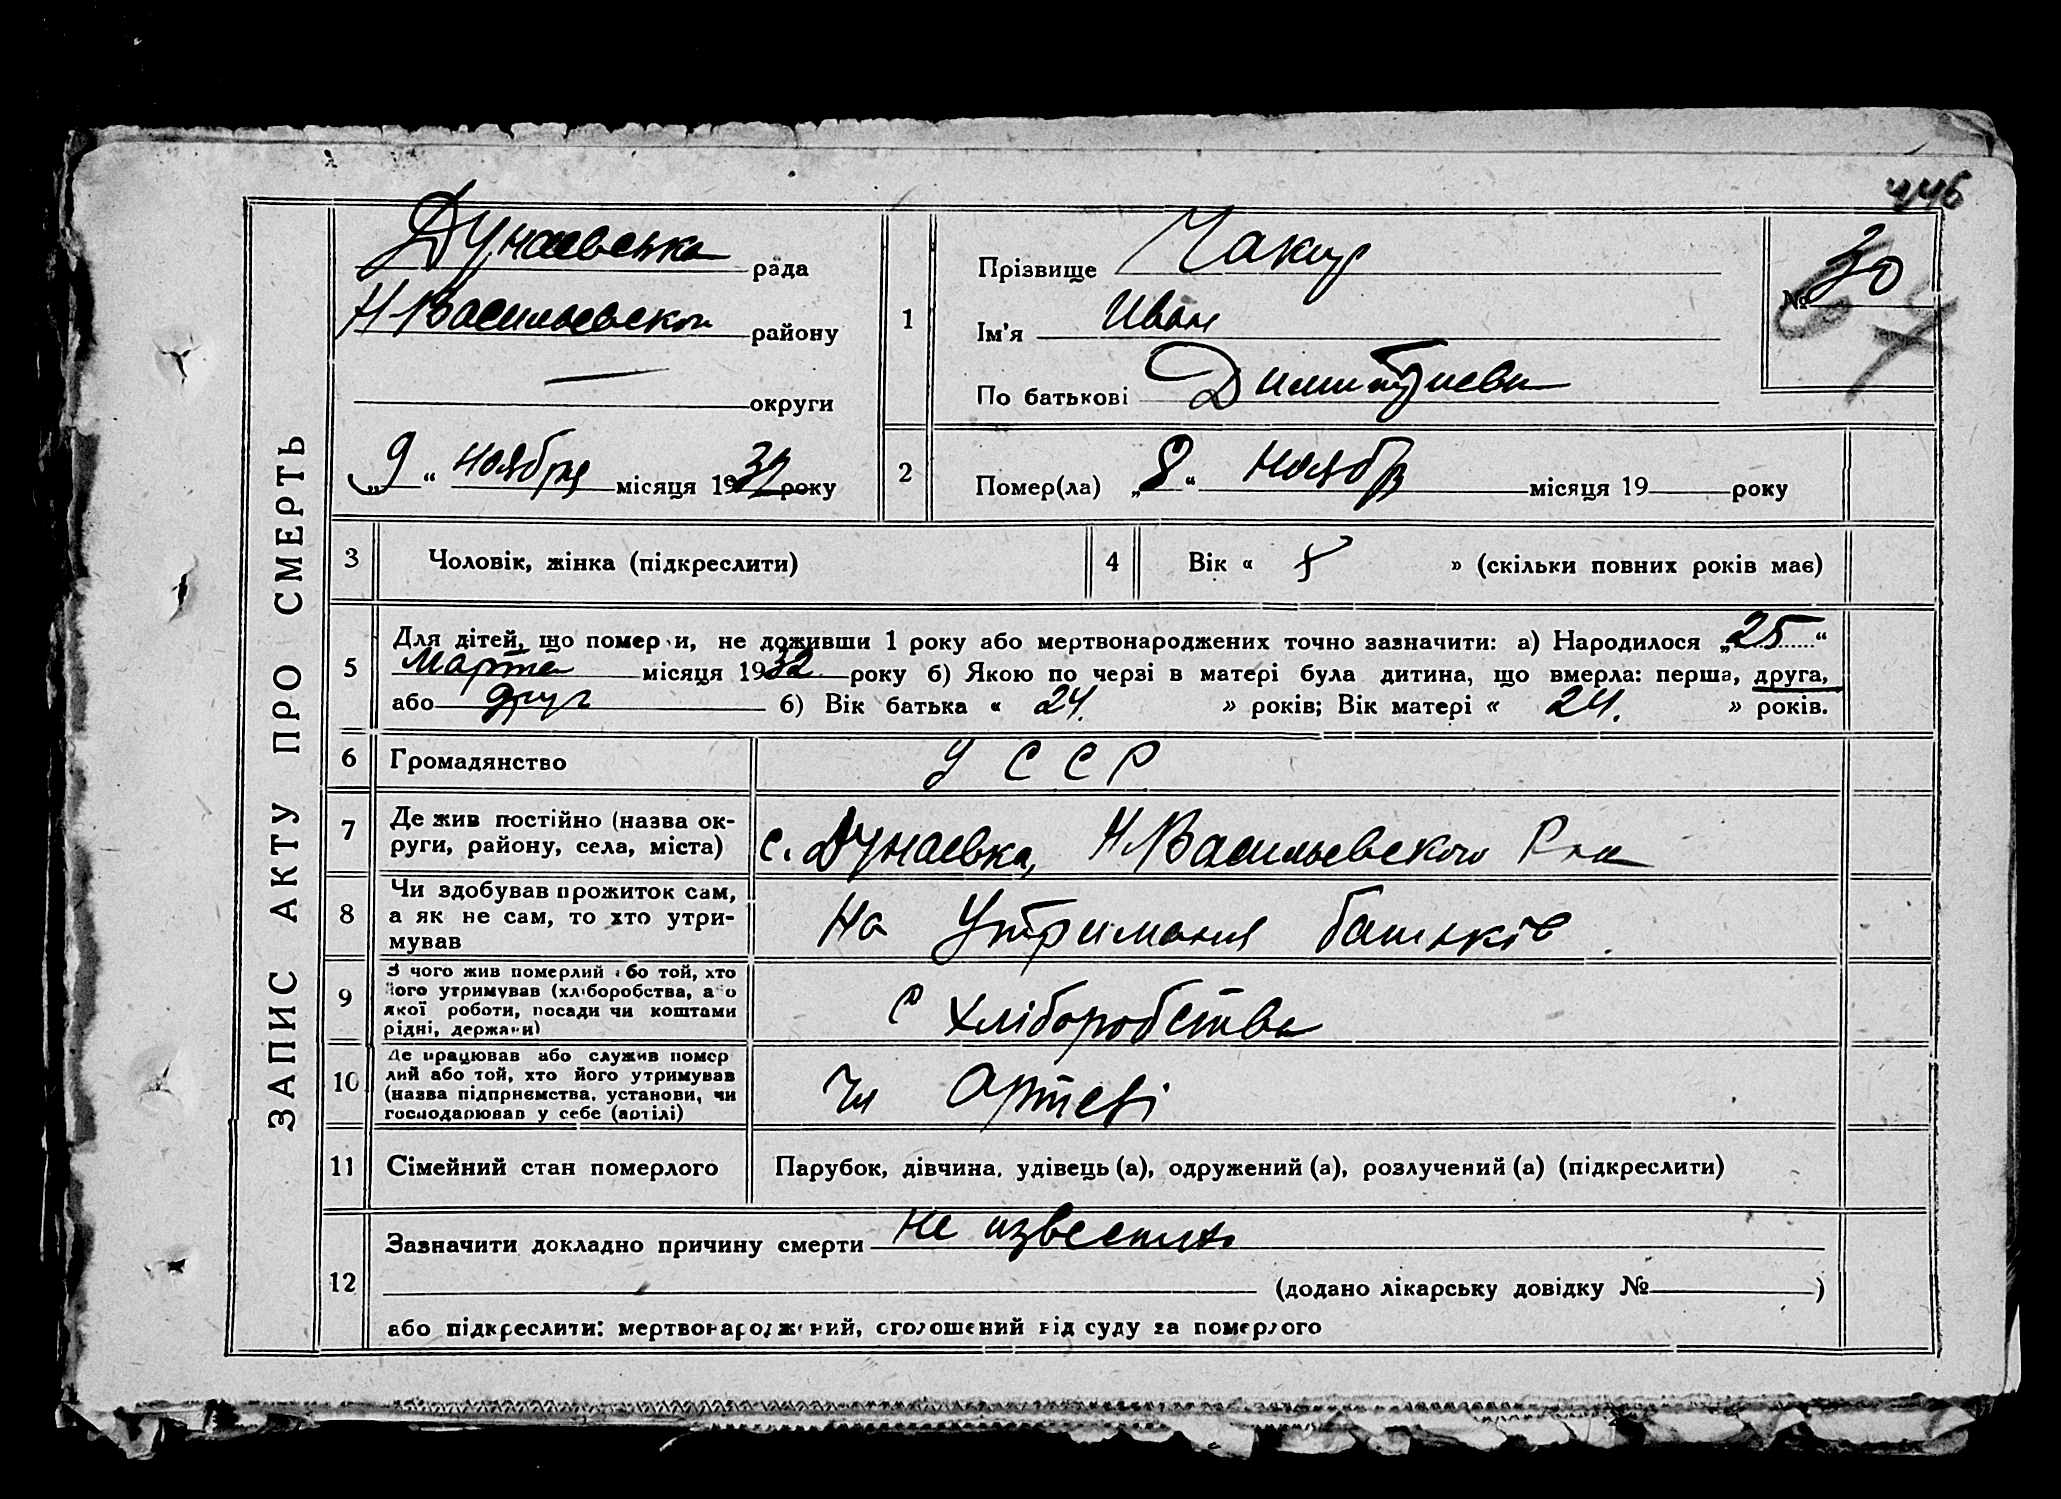 446
ЗАПИС АКТУ ПРО СМЕРТЬ
Дунаевська рада
Н Васильевской району
— округи
„9“ ноября місяця 1932 року
1
Прізвище Чакир
Ім'я Иван
По батькові Димитриев
№ 30
64
2
Помер(ла) „8“ ноябр місяця 19 року
3
Чоловік, жінка (підкреслити)
4
Вік « » (скільки повних років має)
5
Для дітей, що померли, не доживши 1 року або мертвонароджених точно зазначити: а) Народилося „25“
Марта місяця 1932 року б) Якою по черзі в матері була дитина, що вмерла: перша, друга,
або друг б) Вік батька « 24. » років; Вік матері « 24. » років.
6
Громадянство
У С С Р
7
Де жив постійно (назва ок-
руги, району, села, міста)
с. Дунаевка, Н.Васильевского Р-на
8
Чи здобував прожиток сам,
а як не сам, то хто утри-
мував
На Утриманя батьків
9
З чого жив померлий або той, хто
його утримував (хліборобства, або
якої роботи, посади чи коштами
рідні, держави)
с хліборобства
10
Де працював або служив помер
лий або той, хто його утримував
(назва підприємства, установи, чи
господарював у себе (артілі)
Артелі
11
Сімейний стан померлого
Парубок, дівчина, удівець (а), одружений (а), розлучений (а) (підкреслити)
12
Зазначити докладно причину смерти не известно
(додано лікарську довідку № )
або підкреслити: мертвонароджений, оголошений від суду за померлого